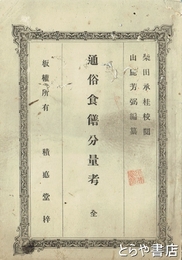 柴田承桂校閲
山田芳弼編纂
通俗食餌分量考 全
板權所有
積慶堂梓
とらや書店